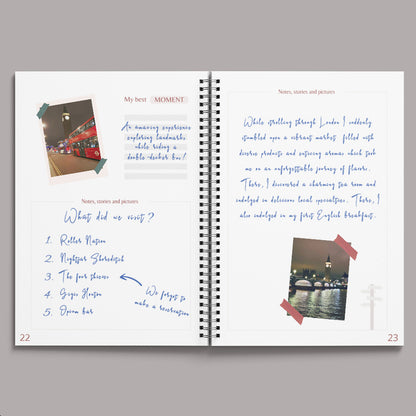 My best MOMENT
An amazing experience
exploring landmarks
while riding a
double-decker bus!
Notes, stories and pictures
What did we visit?
1. Roller Nation
2. Nightjar Shoreditch
3. The four thieves
4. Gigi's Hoxton
5. Opium bar
We forgot to
make a reservation
22
Notes, stories and pictures
While strolling through London I suddenly
stumbled upon a vibrant market, filled with
diverse products and enticing aromas which took
me on an unforgettable journey of flavors.
There, I discovered a charming tea room and
indulged in delicious local specialties. There, I
also indulged in my first English breakfast.
23